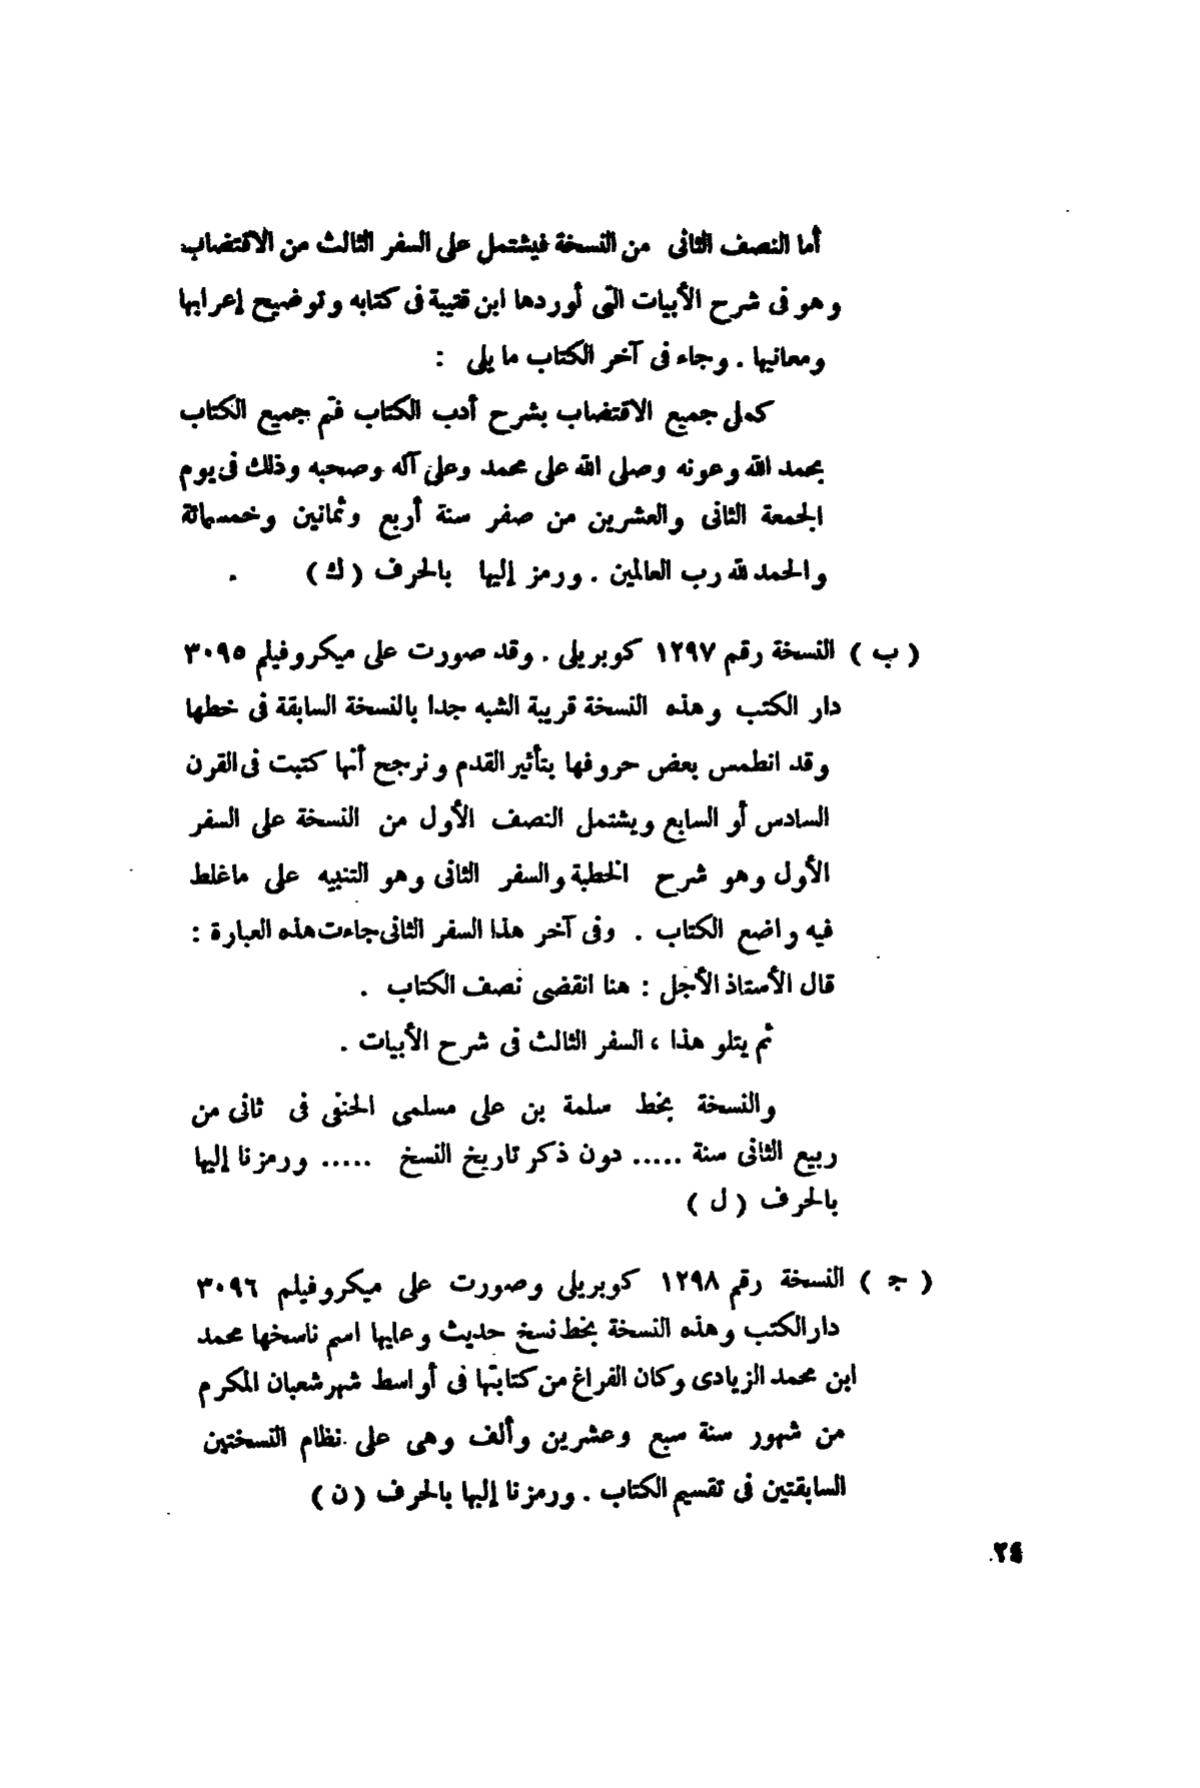 أما النصف الثانى من النسخة فيشتمل على السفر الثالث من الاقتضاب
وهو فى شرح الأبيات التى أوردها ابن قتيبة فى كتابه وتوضيح إعرابها
ومعانيها . وجاء فى آخر الكتاب ما يلى :
كمل جميع الاقتضاب بشرح أدب الكتاب فتم جميع الكتاب
بحمد الله وعونه وصلى الله على محمد وعلى آله وصحبه وذلك فى يوم
الجمعة الثانى والعشرين من صفر سنة أربع وثمانين وخمسمائة
والحمد لله رب العالمين . ورمز إليها بالحرف ( ك ) .
( ب ) النسخة رقم ١٢٩٧ كوبريلى . وقد صورت على ميكروفيلم ٣٠٩٥
دار الكتب وهذه النسخة قريبة الشبه جدا بالنسخة السابقة فى خطها
وقد انطمس بعض حروفها بتأثير القدم ونرجح أنها كتبت فى القرن
السادس أو السابع ويشتمل النصف الأول من النسخة على السفر
الأول وهو شرح الخطبة والسفر الثانى وهو التنبيه على ماغلط
فيه واضع الكتاب . وفى آخر هذا السفر الثانى جاءت هذه العبارة :
قال الأستاذ الأجل : هنا انقضى نصف الكتاب .
ثم يتلو هذا ، السفر الثالث فى شرح الأبيات .
والنسخة بخط سلمة بن على مسلمى الحنفى فى ثانى من
ربيع الثانى سنة ..... دون ذكر تاريخ النسخ ..... ورمزنا إليها
بالحرف ( ل )
( جـ ) النسخة رقم ١٢٩٨ كوبريلى وصورت على ميكروفيلم ٣٠٩٦
دار الكتب وهذه النسخة بخط نسخ حديث وعليها اسم ناسخها محمد
ابن محمد الزيادى وكان الفراغ من كتابتها فى أواسط شهر شعبان المكرم
من شهور سنة سبع وعشرين وألف وهى على نظام النسختين
السابقتين فى تقسيم الكتاب . ورمزنا إليها بالحرف ( ن )
٢٤